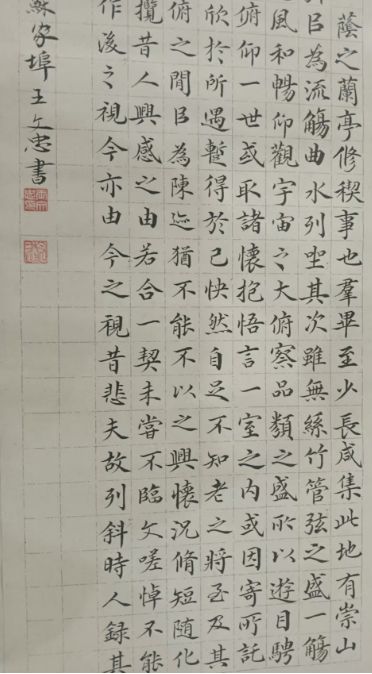 蔭之蘭亭修稧事也羣畢至少長咸集此地有崇山
㠯為流觴曲水列坐其次雖無絲竹管弦之盛一觴
風和暢仰觀宇宙之大俯察品類之盛所以遊目騁
俯仰一世或取諸懷抱悟言一室之内或因寄所託
欣於所遇蹔得於己快然自足不知老之將至及其
俯之間㠯為陳迹猶不能不以之興懷況脩短随化
攬昔人興感之由若合一契未嘗不臨文嗟悼不能
作後之視今亦由今之視昔悲夫故列斜時人録其
蘇家埠王文忠書